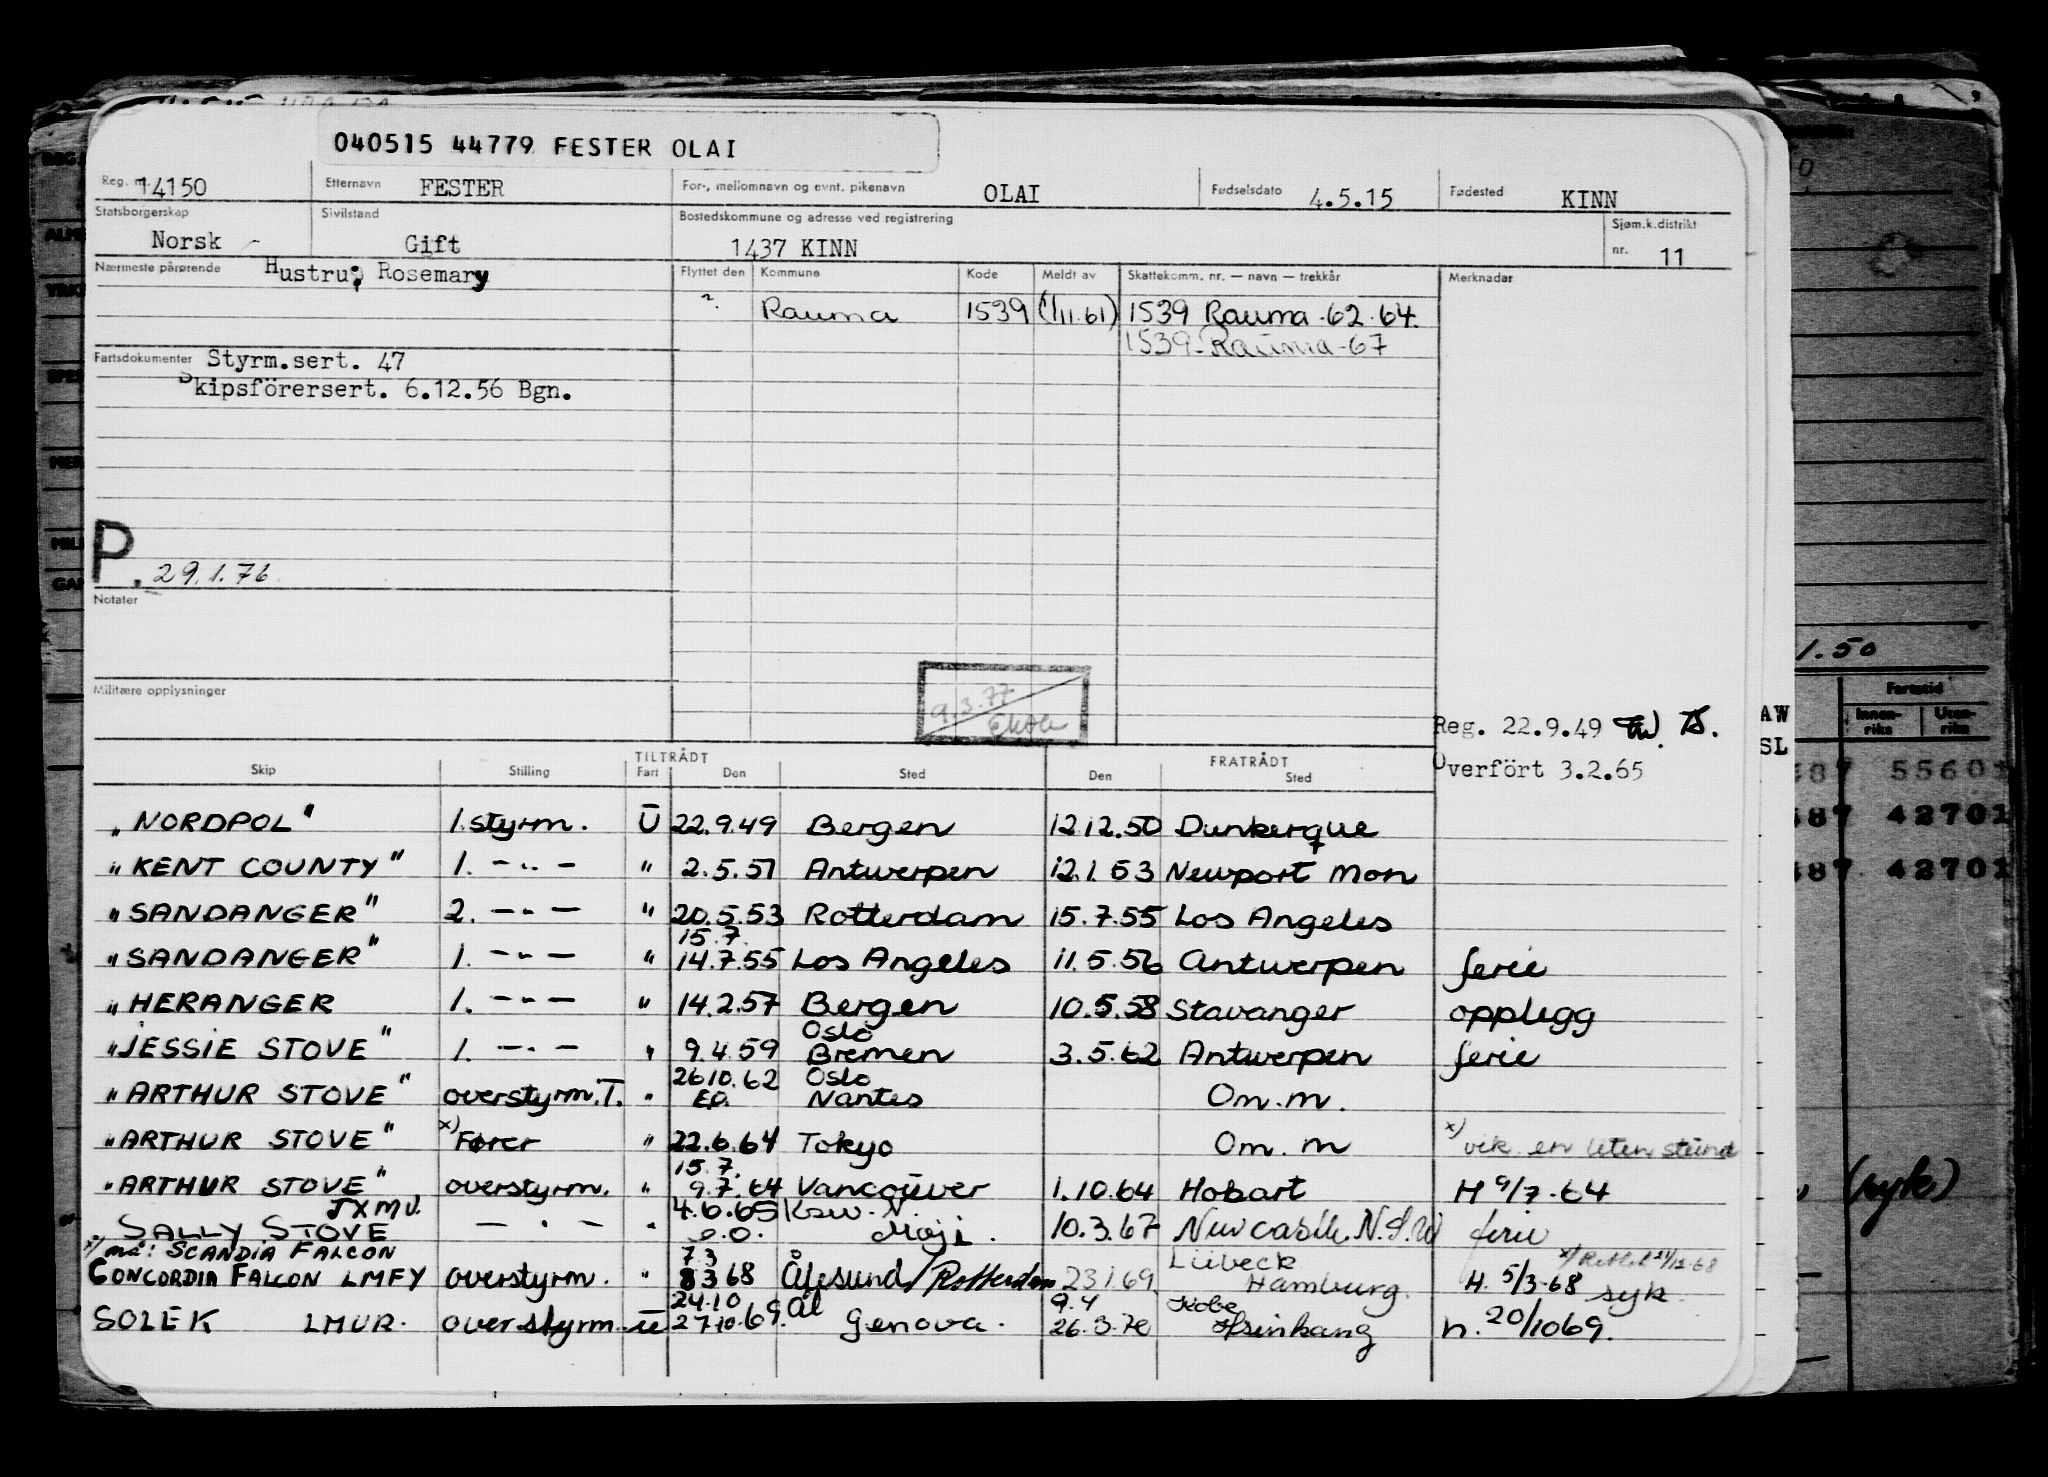 040515 44779 FESTER OLAI
Reg. nr. 14150 Etternavn FESTER For-, mellomnavn og evnt. pikenavn OLAI Fødselsdato 4.5.15 Fødested KINN
Statsborgerskap Norsk Sivilstand Gift Bostedskommune og adresse ved registrering 1437 KINN Sjøm.k.distrikt nr. 11
Nærmeste pårørende Hustru; Rosemary Flyttet den Kommune Kode Meldt av Skattekomm. nr. — navn — trekkår Merknader
Rauma 1539 (1/11.61) 1539 Rauma -62-64.
1539-Rauma-67
Fartsdokumenter Styrm.sert. 47
Skipsförersert. 6.12.56 Bgn.
P. 29.1.76
Notater
Militære opplysninger
9.3.77
Reg. 22.9.49
Overfört 3.2.65
TILTRÅDT FRATRÅDT
Skip Stilling Fart Den Sted Den Sted
"NORDPOL" 1.styrm. U 22.9.49 Bergen 12.12.50 Dunkerque
"KENT COUNTY" 1. -"- " 2.5.51 Antwerpen 12.1.53 Newport Mon
"SANDANGER" 2. -"- " 20.5.53 Rotterdam 15.7.55 Los Angeles
15.7.
"SANDANGER" 1. -"- " 14.7.55 Los Angeles 11.5.56 Antwerpen ferie
"HERANGER 1. -"- " 14.2.57 Bergen 10.5.58 Stavanger opplegg
Oslo
"JESSIE STOVE" 1. -"- " 9.4.59 Bremen 3.5.62 Antwerpen ferie
26.10.62 Oslo
"ARTHUR STOVE" overstyrm.T. " E.O. Nantes Om.m.
"ARTHUR STOVE" x) Fører " 22.6.64 Tokyo Om.m x) vik en liten stund
15.7.
"ARTHUR STOVE" overstyrm. " 9.7.64 Vancouver 1.10.64 Hobart H 9/7-64
JXMV. 4.6.65
SALLY STOVE - " - " Moji. 10.3.67 Newcastle. N.S.W ferie
x) nå: SCANDIA FALCON 7.3 Lübeck
CONCORDIA FALCON LMFY overstyrm. " 8 3 68 Ålesund/Rotterdam 23.1.69. Hamburg. H. 5/3-68 syk
24.10 Ål 9.4 Kobe
SOLEK LMUR. overstyrm. U 27.10.69. Genova. 26.3.70 Hsinkang h. 20/1069.
1.50
Fartstid
Innen-riks Uten-riks
AW
SL
487 55601
487 42701
487 42701
(syk)